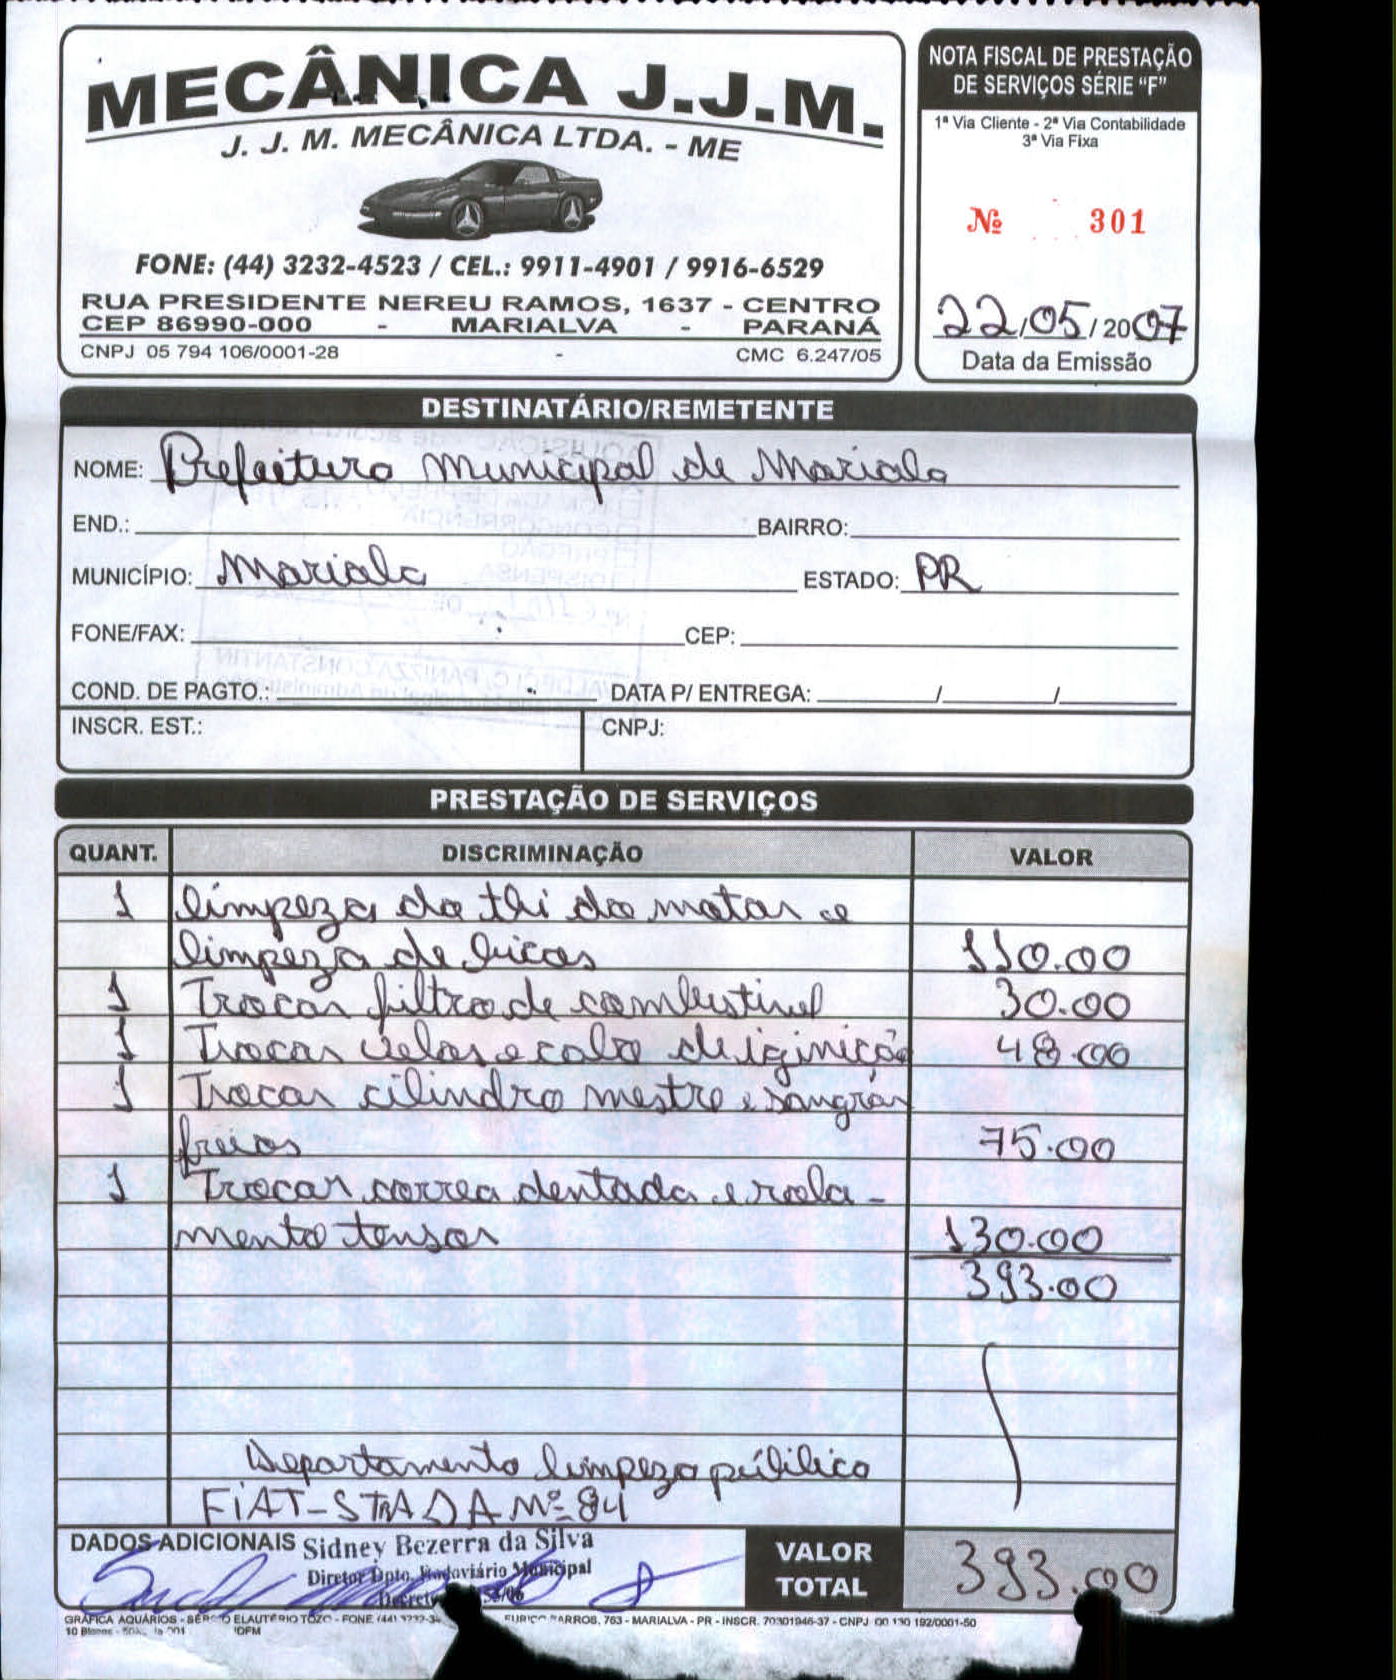 MECÂNICA J.J.M.
J. J. M. MECÂNICA LTDA. - ME
FONE: (44) 3232-4523 / CEL.: 9911-4901 / 9916-6529
RUA PRESIDENTE NEREU RAMOS, 1637 - CENTRO
CEP 86990-000 - MARIALVA - PARANÁ
CNPJ 05 794 106/0001-28 - CMC 6.247/05
NOTA FISCAL DE PRESTAÇÃO
DE SERVIÇOS SÉRIE "F"
1ª Via Cliente - 2ª Via Contabilidade
3ª Via Fixa
Nº 301
22/05/2007
Data da Emissão
DESTINATÁRIO/REMETENTE
NOME: Prefeitura Municipal de Mariala
END.: BAIRRO:
MUNICÍPIO: Mariala ESTADO: PR
FONE/FAX: CEP:
COND. DE PAGTO.: DATA P/ ENTREGA: / /
INSCR. EST.: CNPJ:
PRESTAÇÃO DE SERVIÇOS
QUANT. DISCRIMINAÇÃO VALOR
1 limpeza do tbi do motor e
limpeza de bicos 110.00
1 Trocar filtro de combustivel 30.00
1 Trocar velas e cabo de iginição 48.00
1 Trocar cilindro mestre e sangrar
freios 75.00
1 Trocar correa dentada e rola-
mento tensor 130.00
393.00
Departamento limpeza públilico
FIAT-STRADA Nº 84
DADOS ADICIONAIS Sidney Bezerra da Silva
Diretor Dpto. Rodoviário Municipal
VALOR
TOTAL 393.00
GRÁFICA AQUÁRIOS - SÉRGIO ELAUTÉRIO TOZO - FONE (44) 3232-34
BARROS, 763 - MARIALVA - PR - INSCR. 70301946-37 - CNPJ 00 130 192/0001-50
10 Blocos